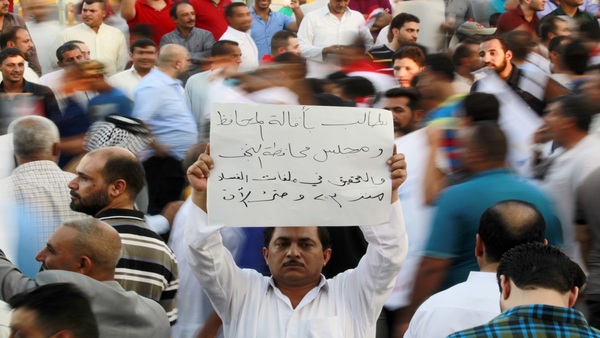 نطالب بأقالة المحافظ
و مجلس محافظة
والتحقيق في ملفات الفساد
منذ و حتى الآن